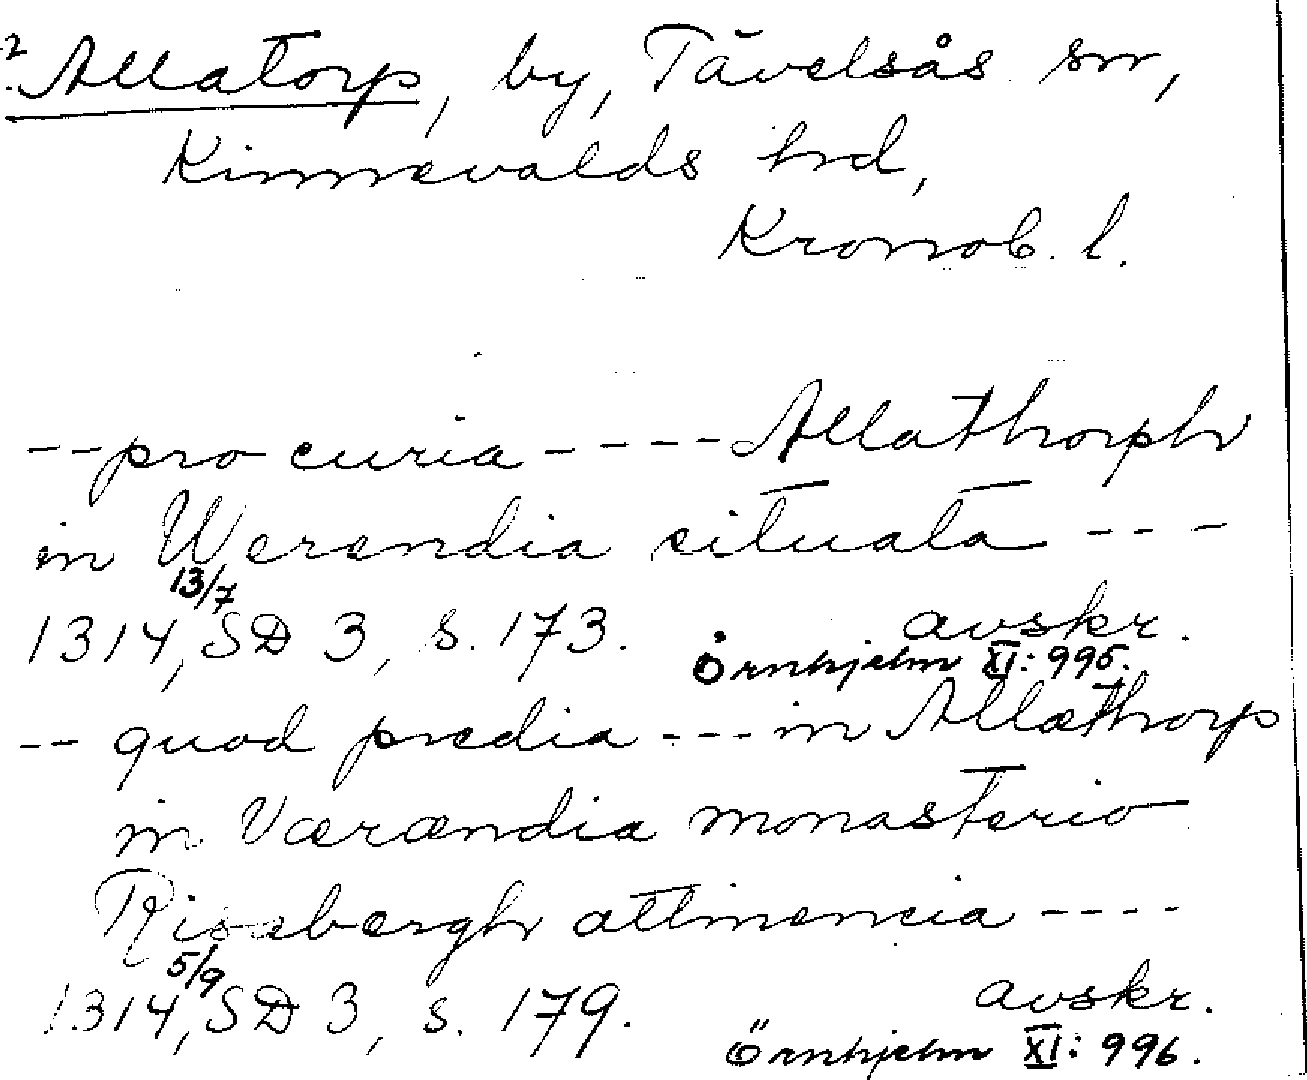 2. Allatorp, by, Tävelsås sn,
Kinnevalds hd,
Kronob. l.
-- pro curia ---- Allathorph
in Werendia situata ---
13/7
1314, SD 3, s. 173. avskr.
Örnhjelm XI: 995.
-- quod predia --- in Allæthorp
in Værændia monasterio
Risæbergh attinencia ----
5/9
1314, SD 3, s. 179. avskr.
Örnhjelm XI: 996.